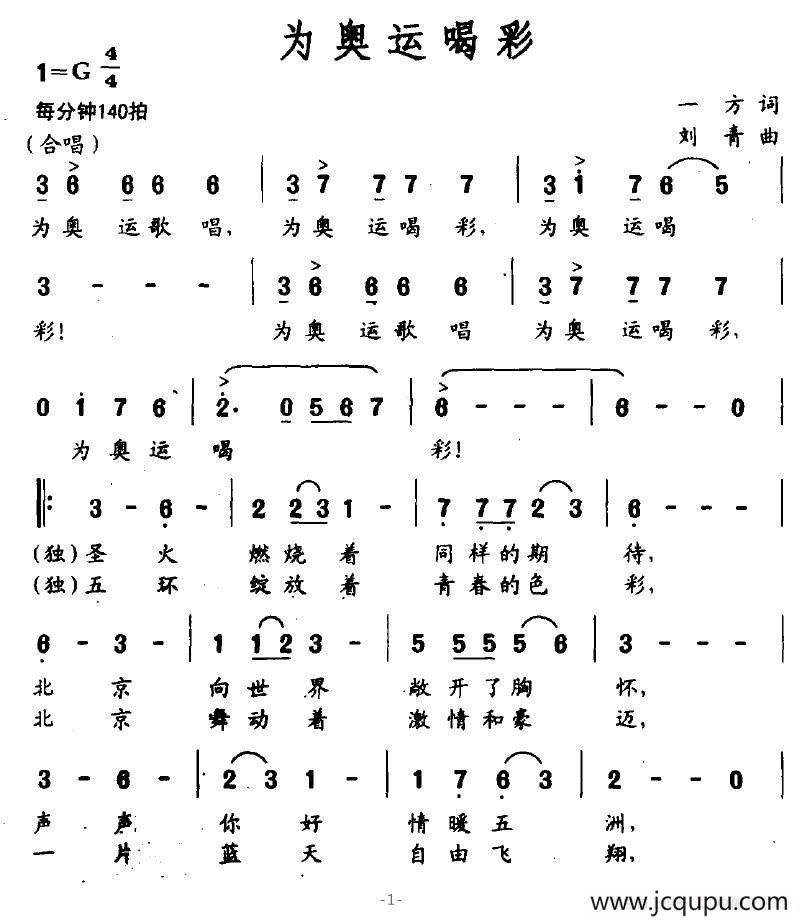 为奥运喝彩
1=G 4/4
每分钟140拍
一 方 词
(合唱)
刘 青 曲
3 6 6 6 6 | 3 7 7 7 7 | 3 1 7 6 5 |
为奥 运歌 唱, 为奥 运喝 彩, 为奥 运喝
3 - - - | 3 6 6 6 6 | 3 7 7 7 7 |
彩! 为奥 运歌 唱 为奥 运喝 彩,
0 1 7 6 | 2· 0 5 6 7 | 6 - - - | 6 - - 0 |
为 奥 运 喝 彩!
‖: 3 - 6 - | 2 2 3 1 - | 7 7 7 2 3 | 6 - - - |
(独)圣 火 燃烧着 同样的期 待,
(独)五 环 绽放着 青春的色 彩,
6 - 3 - | 1 1 2 3 - | 5 5 5 5 6 | 3 - - - |
北 京 向世界 敞开了胸 怀,
北 京 舞动着 激情和豪 迈,
3 - 6 - | 2 3 1 - | 1 7 6 3 | 2 - - 0 |
声 声 你 好 情暖五 洲,
一 片 蓝 天 自由飞 翔,
-1-
www.jcqupu.com